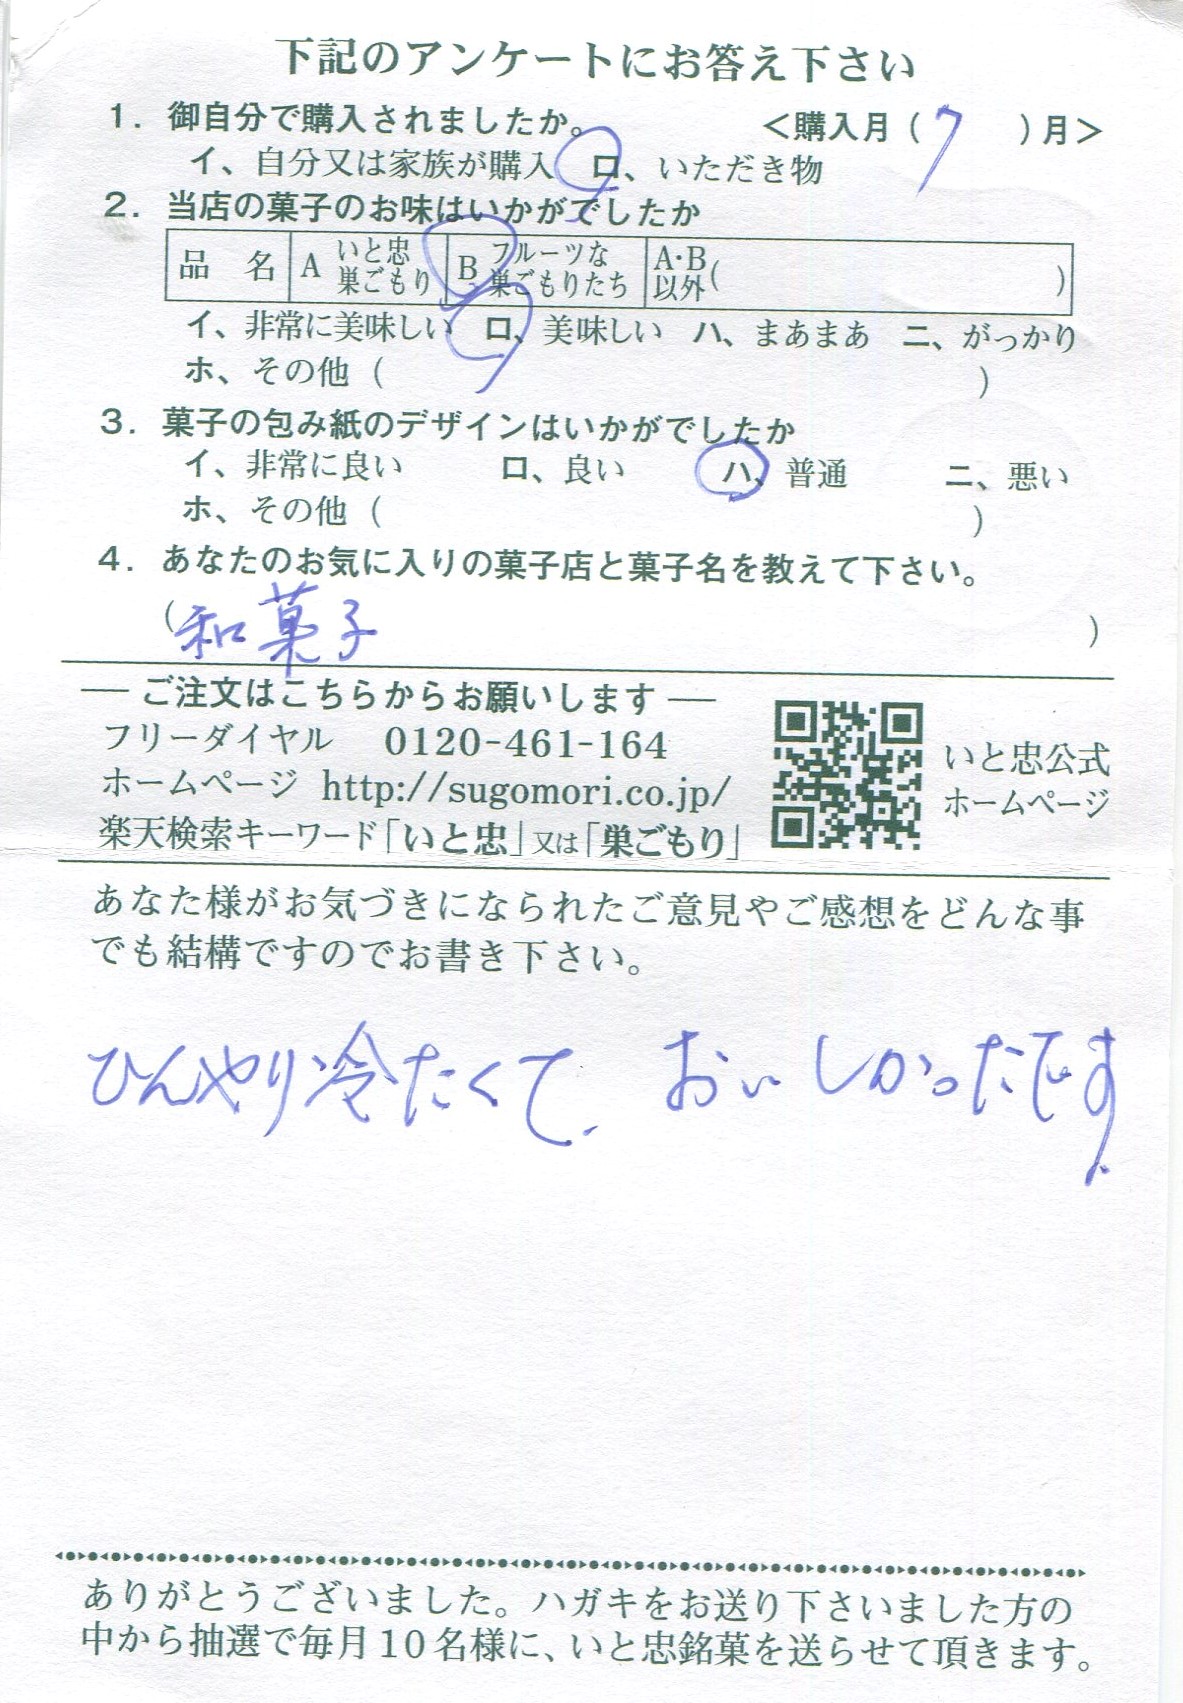 下記のアンケートにお答え下さい
1. 御自分で購入されましたか。 <購入月(7)月>
イ、自分又は家族が購入 ロ、いただき物
2. 当店の菓子のお味はいかがでしたか
品 名 A いと忠巣ごもり B フルーツな巣ごもりたち A・B以外( )
イ、非常に美味しい ロ、美味しい ハ、まあまあ ニ、がっかり
ホ、その他( )
3. 菓子の包み紙のデザインはいかがでしたか
イ、非常に良い ロ、良い ハ、普通 ニ、悪い
ホ、その他( )
4. あなたのお気に入りの菓子店と菓子名を教えて下さい。
(和菓子)
― ご注文はこちらからお願いします ―
フリーダイヤル 0120-461-164
ホームページ http://sugomori.co.jp/
楽天検索キーワード「いと忠」又は「巣ごもり」
いと忠公式
ホームページ
あなた様がお気づきになられたご意見やご感想をどんな事
でも結構ですのでお書き下さい。
ひんやり冷たくて、おいしかったです.
ありがとうございました。ハガキをお送り下さいました方の
中から抽選で毎月10名様に、いと忠銘菓を送らせて頂きます。